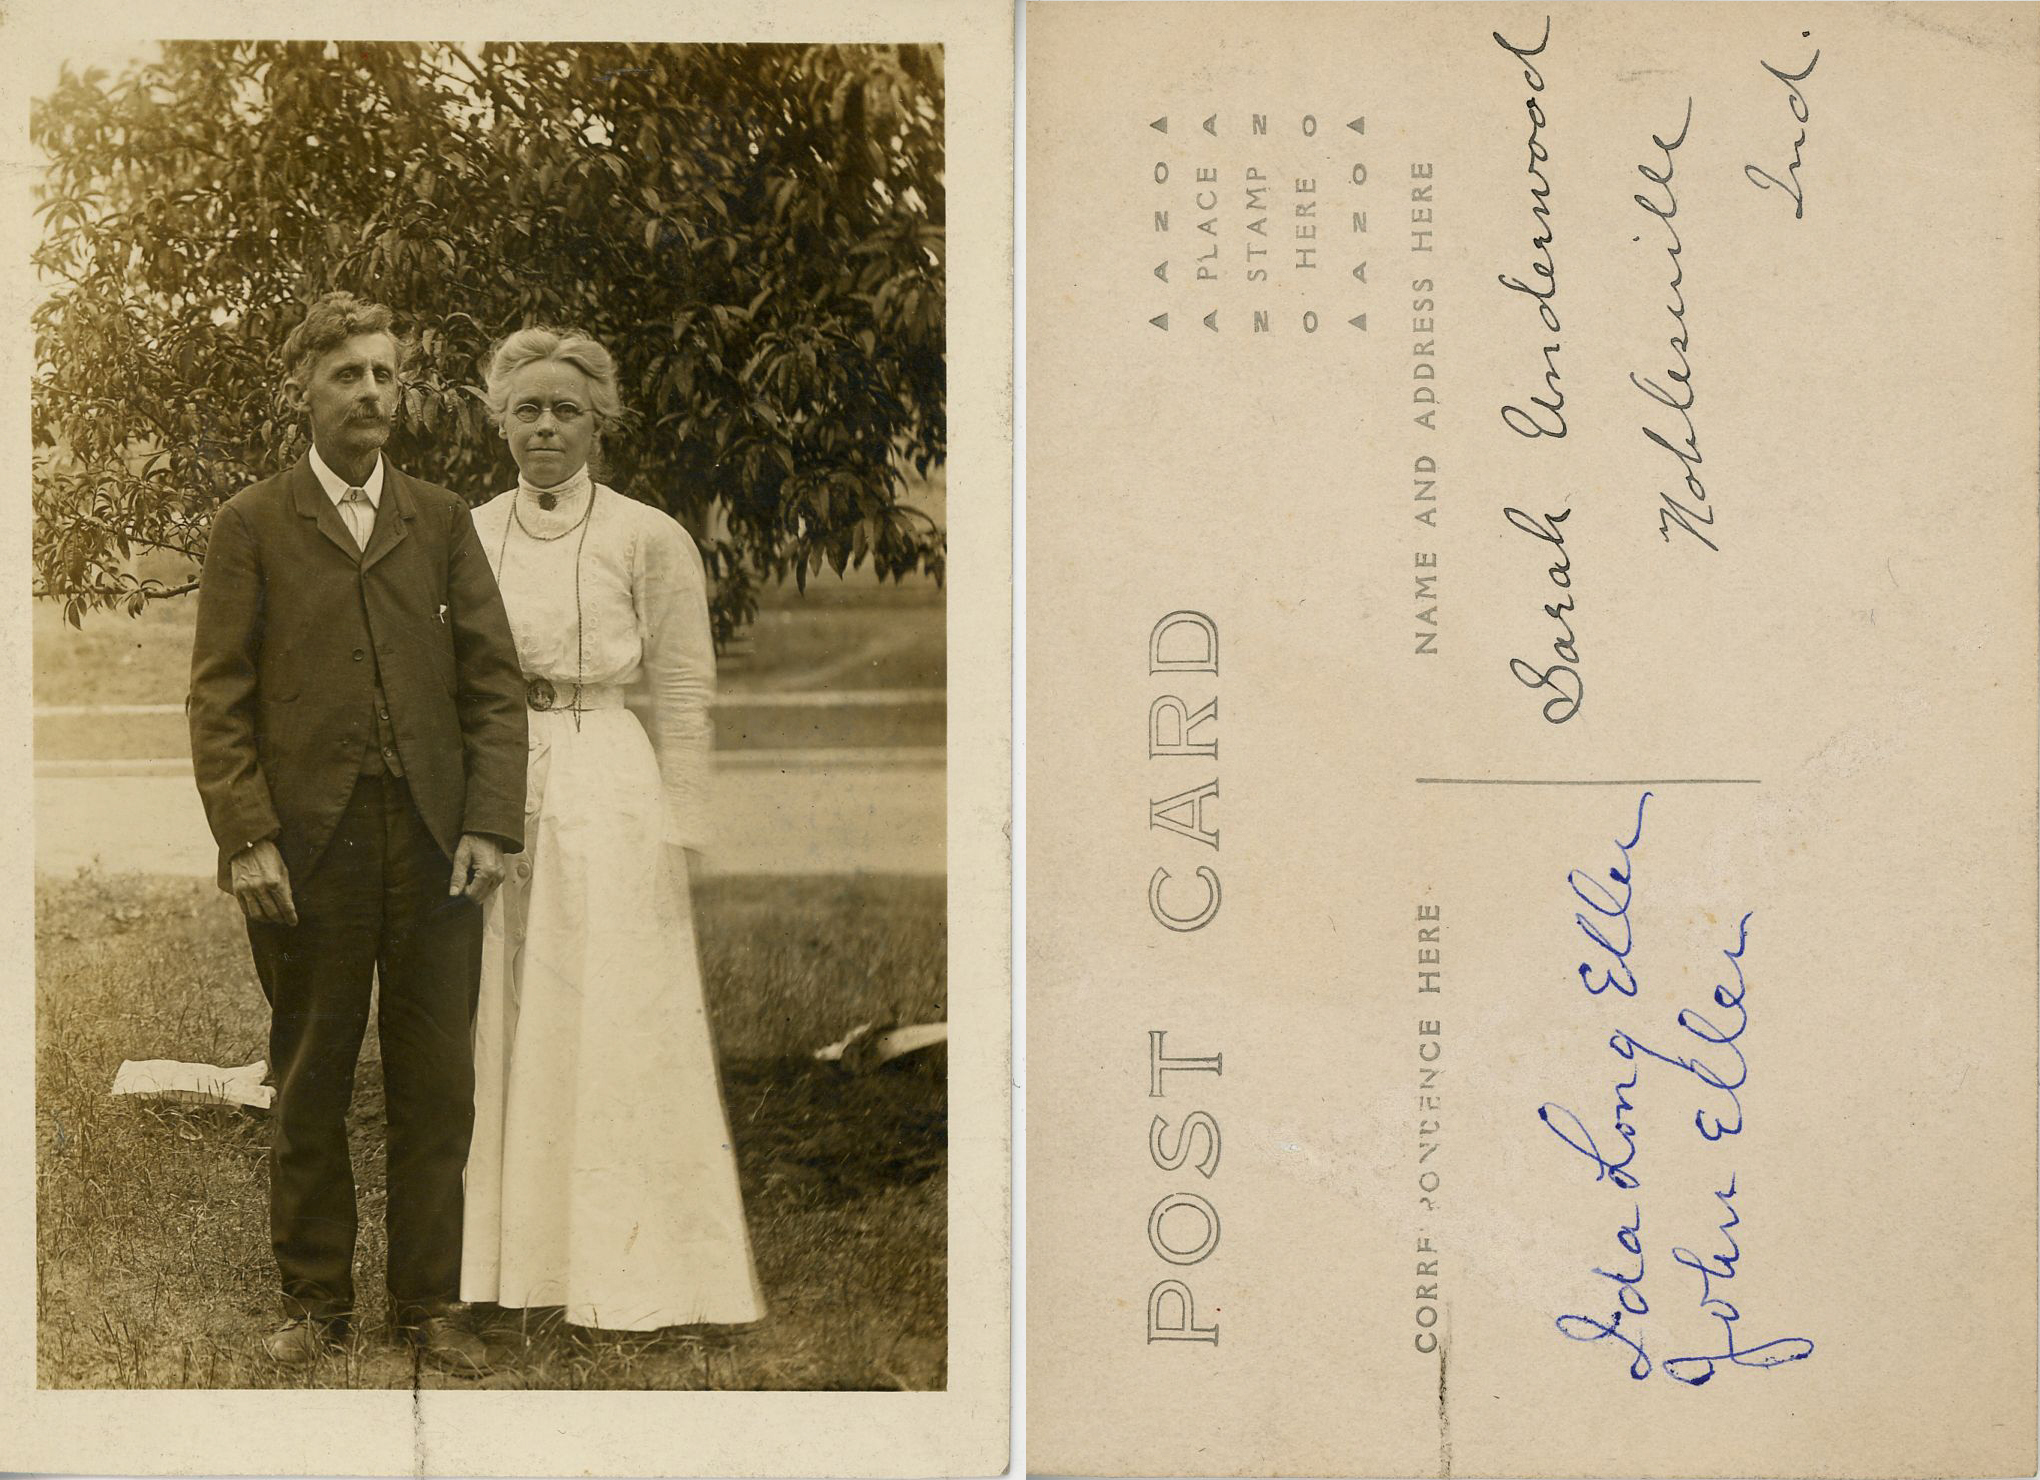 POST CARD
▲ A Z O ▲
A PLACE A
Z STAMP Z
O HERE O
▲ A Z O ▲
CORRESPONDENCE HERE
NAME AND ADDRESS HERE
Ida Long Eller
John Eller
Sarah Underwood
Noblesville
Ind.